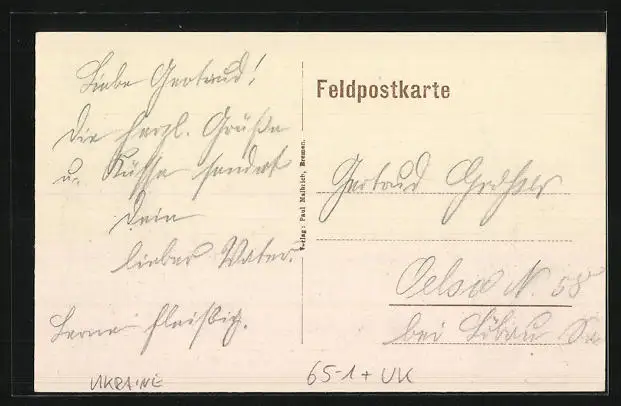 Liebe Gertraud!
Die herzl. Grüße
u. Küsse sendet
Dein
lieber Vater.
Lerne fleißig.
Feldpostkarte
Gertraud
Oelsa N. 58
bei Löbau Sa
Verlag: Paul Malhrich, Bremen.
UKRAINE
65-1 + UK